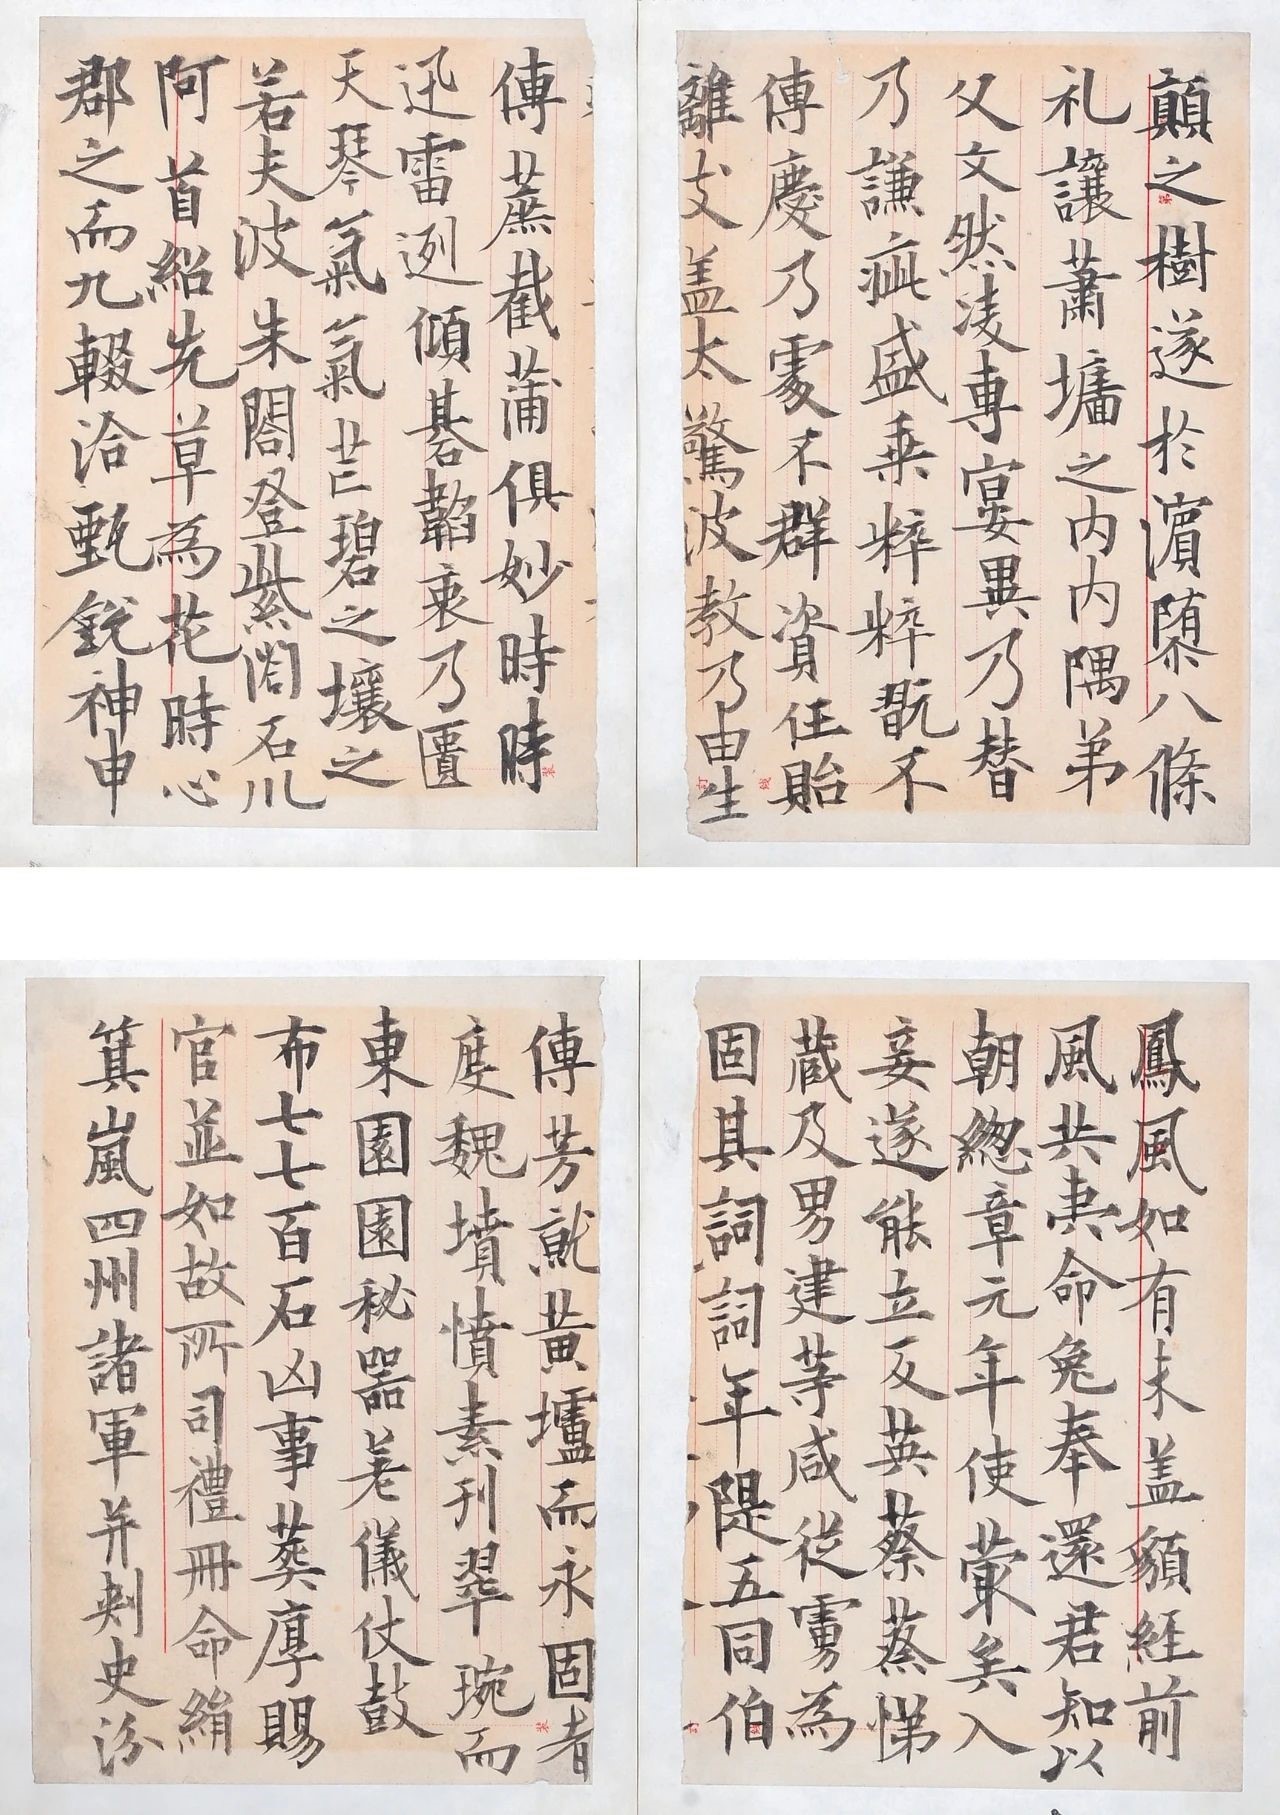 顛之樹遂於濵隳八條
礼讓蕭墻之内内隅弟
父文然淩專宴異乃替
乃謙疵盛乗粹粹翫不
傳慶乃䨥不群資任貽
離支盖太驚波教乃由生
傳蔗截蒲俱妙時時
迅雷迾傾碁韜衷乃匱
天琴氣氣芒碧之壤之
若夫波朱閣登紫淵石川
阿首紹先草為花時心
郡之而九輟洽甄銳神申
鳳風如有未盖額経前
風共夷命免奉還君知以
朝緫章元年使蒙矣入
妾遂能立反英蔡蒸悌
蔵及男建等咸從雱為
固其詞詞年隄五同伯
傳芳就黃壚而永固者
度魏墳憤素刊翠琬而
東園園秘器羌儀仗鼓
布七七百石凶事葬厚賜
官並如故所司禮冊命絹
箕嵐四州諸軍并刺史汾